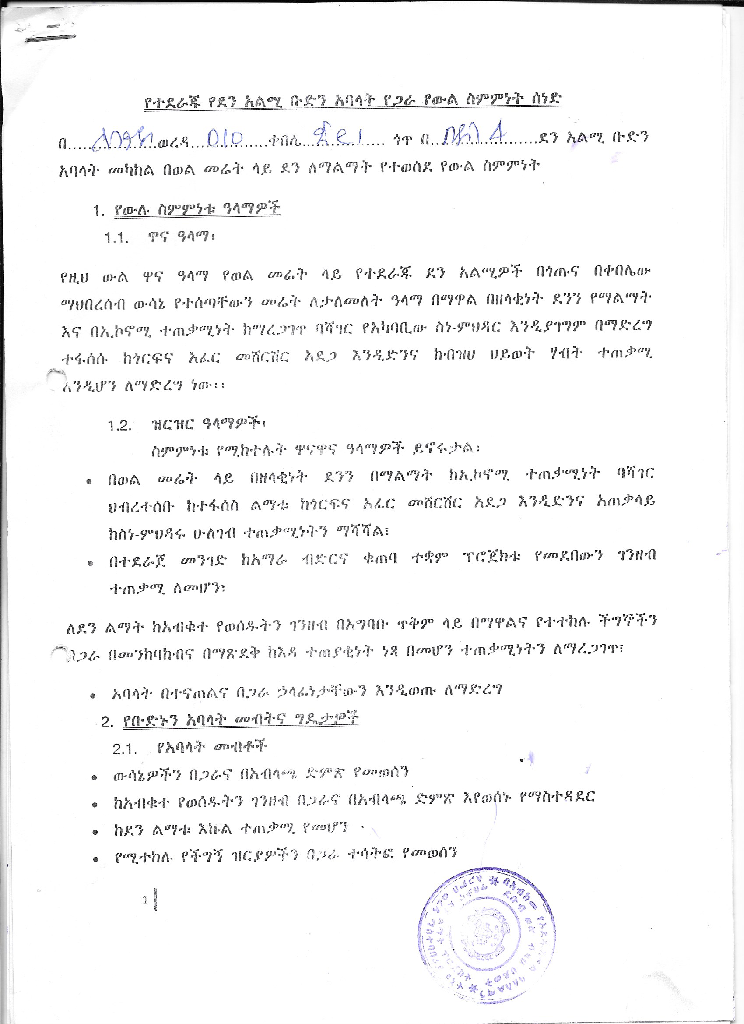 የተደራጁ የደን አልሚ ቡድን አባላት የጋራ የውል ስምምነት ሰነድ
በ..........ወረዳ..........ቀበሌ..........ጎጥ በ..........ደን አልሚ ቡድን
አባላት መካከል በወል መሬት ላይ ደን ለማልማት የተወሰደ የውል ስምምነት
1. የውሉ ስምምነቱ ዓላማዎች
1.1. ዋና ዓላማ፡
የዚህ ውል ዋና ዓላማ የወል መሬት ላይ የተደራጁ ደን አልሚዎች በጎጡና በቀበሌው
ማህበረሰብ ውሳኔ የተሰጣቸውን መሬት ለታለመለት ዓላማ በማዋል በዘላቂነት ደንን የማልማት
እና በኢኮኖሚ ተጠቃሚነት ከማረጋገጥ ባሻገር የአካባቢው ስነ-ምህዳር እንዲያገግም በማድረግ
ተፋሰሱ ከጎርፍና አፈር መሸርሸር አደጋ እንዲድንና ከብዝሀ ህይወት ሃብት ተጠቃሚ
እንዲሆን ለማድረግ ነው፡፡
1.2. ዝርዝር ዓላማዎች፡
ስምምነቱ የሚከተሉት ዋናዋና ዓላማዎች ይኖሩታል፡
• በወል መሬት ላይ በዘላቂነት ደንን በማልማት ከኢኮኖሚ ተጠቃሚነት ባሻገር
ህብረተሰቡ ከተፋሰስ ልማቱ ከጎርፍና አፈር መሸርሸር አደጋ እንዲድንና አጠቃላይ
ከስነ-ምህዳሩ ሁለገብ ተጠቃሚነትን ማሻሻል፣
• በተደራጀ መንገድ ከአማራ ብድርና ቁጠባ ተቋም ፕሮጀክቱ የመደበውን ገንዘብ
ተጠቃሚ ለመሆን፣
ለደን ልማት ከአብቁተ የወሰዱትን ገንዘብ በአግባቡ ጥቅም ላይ በማዋልና የተተከሉ ችግኞችን
በጋራ በመንከባከብና በማጽደቅ ከእዳ ተጠያቂነት ነጻ በመሆን ተጠቃሚነትን ለማረጋገጥ፣
• አባላት በተናጠልና በጋራ ኃላፊነታቸውን እንዲወጡ ለማድረግ
2. የቡድኑን አባላት መብትና ግዴታዎች
2.1. የአባላት መብቶች
• ውሳኔዎችን በጋራና በአብላጫ ድምጽ የመወሰን
• ከአብቁተ የወሰዱትን ገንዘብ በጋራና በአብላጫ ድምጽ እየወሰኑ የማስተዳደር
• ከደን ልማቱ እኩል ተጠቃሚ የመሆን
• የሚተከሉ የችግኝ ዝርያዎችን በጋራ ተሳትፎ የመወሰን
1